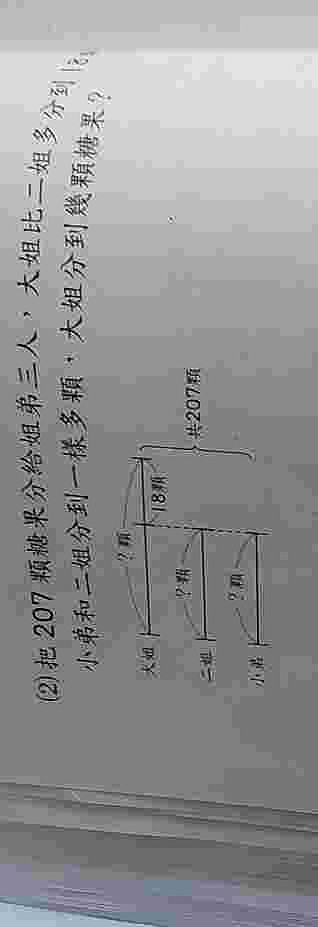 (2) 把 207 顆糖果分給姐弟三人，大姐比二姐多分到 18
小弟和二姐分到一樣多顆，大姐分到幾顆糖果？
？顆
大姐
18顆
？顆
二姐
共207顆
？顆
小弟